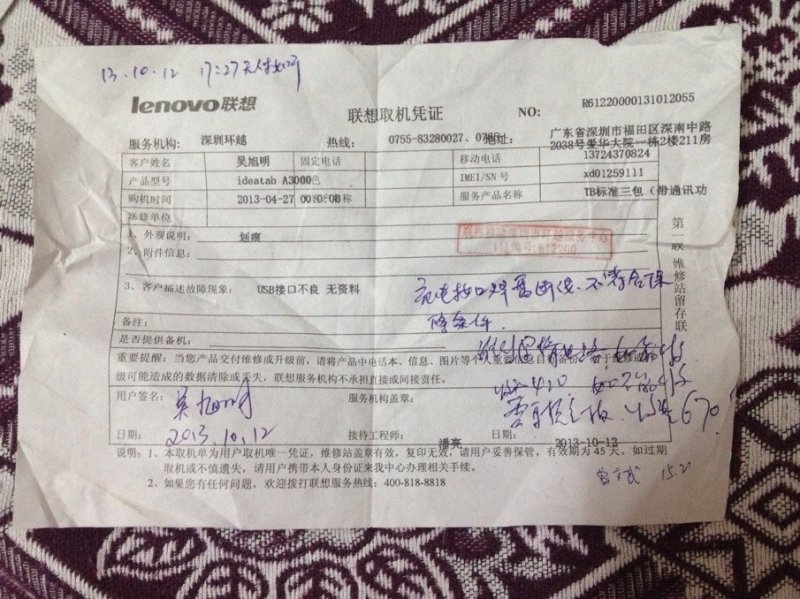 13.10.12 17:27
lenovo联想
联想取机凭证
NO: R61220000131012055
服务机构: 深圳环越 热线: 0755-83280027、 地址: 广东省深圳市福田区深南中路
2038号爱华大院一栋2楼211房
客户姓名 吴旭明 固定电话 移动电话 13724370824
产品型号 ideatab A3000色 IMEI/SN号 xd01259111
购机时间 2013-04-27 00:0:00 服务产品名称 TB标准三包（带通讯功
送修单位
1、外观说明: 划痕
2、附件信息:
3、客户描述故障现象: USB接口不良 无资料
充电接口焊盘断线、不符合保
修条件
备注:
是否提供备机:
重要提醒: 当您产品交付维修或升级前，请将产品中电话本、信息、图片等个人重要信息自行备份
级可能造成的数据清除或丢失，联想服务机构不承担直接或间接责任。
用户签名: 吴旭明 服务机构盖章:
670
日期: 2013.10.12 接待工程师: 日期: 2013-10-12
说明: 1、本取机单为用户取机唯一凭证，维修站盖章有效，复印无效，请用户妥善保管，有效期为45天。如过期
取机或不慎遗失，请用户携带本人身份证来我中心办理相关手续。
2、如果您有任何问题，欢迎拨打联想服务热线: 400-818-8818
第一联 维修站留存联